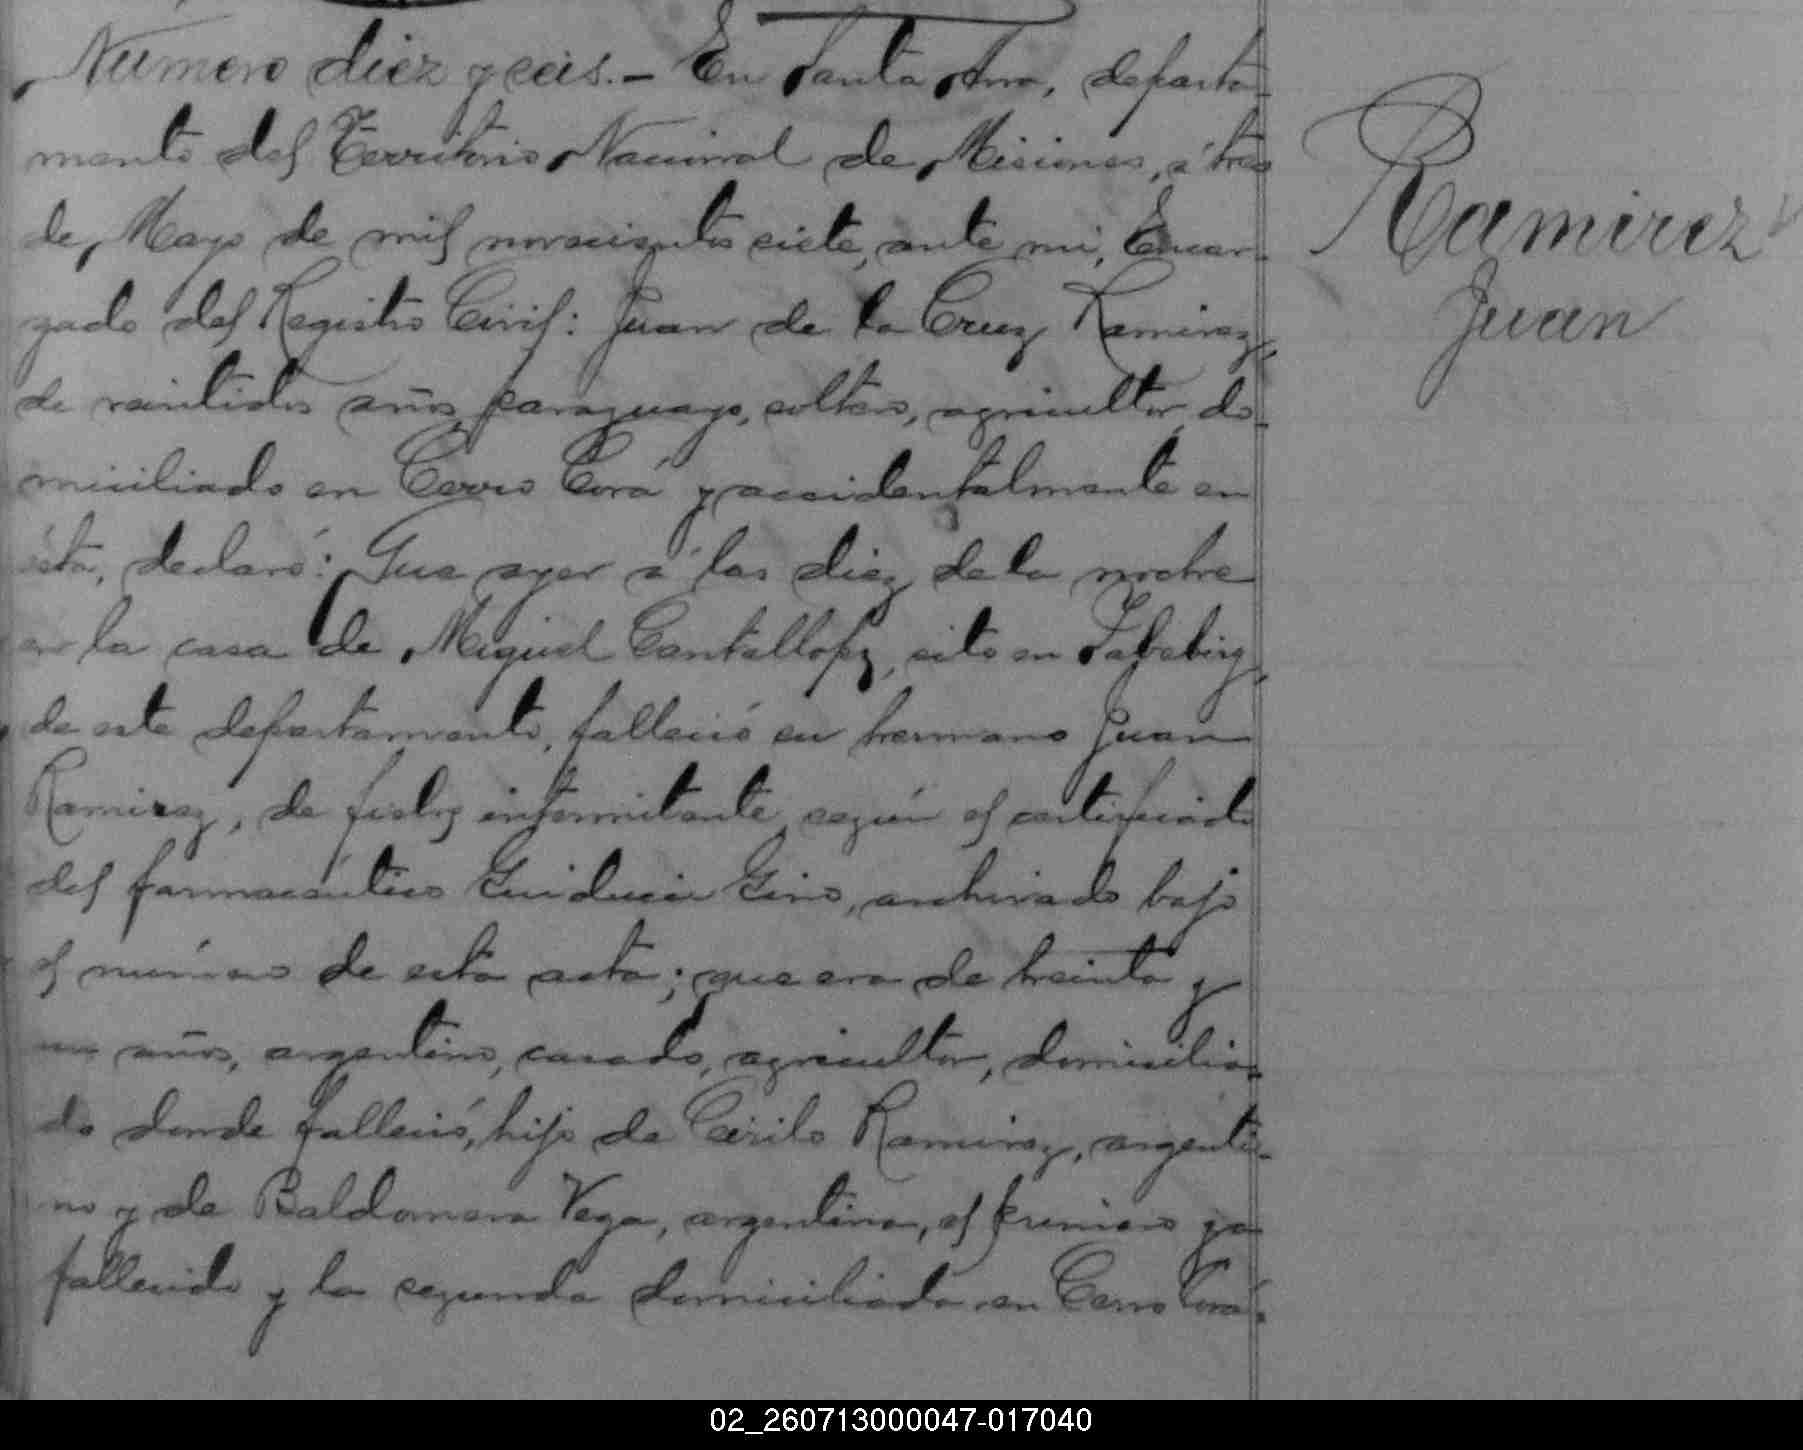 Número diez y seis.- En Santa Ana, departa-
mento del Territorio Nacional de Misiones, á tres
de Mayo de mil novecientos siete, ante mi, Encar-
gado del Registro Civil: Juan de la Cruz Ramirez,
de veintidos años, paraguayo, soltero, agricultor, do-
miciliado en Cerro Corá y accidentalmente en
ésta, declaró: Que ayer á las diez de la noche
en la casa de Miguel Cantallopz, sito en
de este departamento, falleció su hermano Juan
Ramirez, de fiebre intermitente, según el certificado
del farmacéutico Guiducci Gino, archivado bajo
el número de esta acta; que era de treinta y
un años, argentino, casado, agricultor, domicilia-
do donde falleció, hijo de Cirilo Ramirez, argenti-
no y de Baldomera Vega, argentina, el primero ya
fallecido y la segunda domiciliada en Cerro Corá.
Ramirez
Juan
02_260713000047-017040